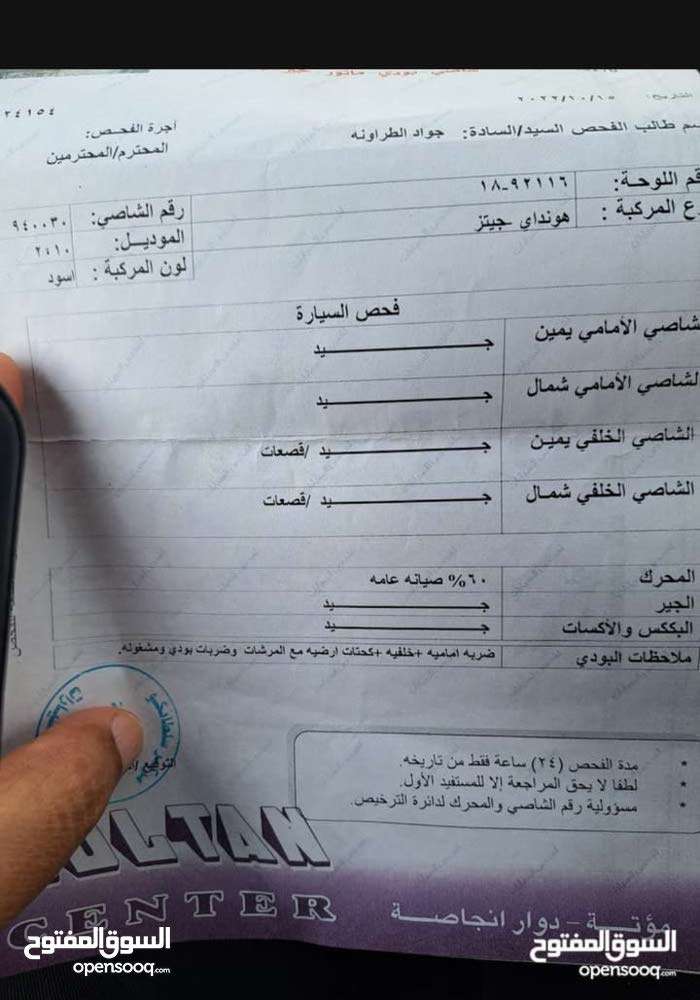 ٢٤١٥٤
التاريخ: ٢٠٢٢/١٠/١٥
أجرة الفحص:
سم طالب الفحص السيد/السادة: جواد الطراونه
المحترم/المحترمين
قم اللوحة: ١٨-٩٢١١٦
رقم الشاصي: ٩٤٠٠٣٠
ع المركبة : هونداي جيتز
الموديل: ٢٤١٠
لون المركبة : اسود
فحص السيارة
شاصي الأمامي يمين جـــيد
لشاصي الأمامي شمال جـــيد
الشاصي الخلفي يمين جـــيد /قصعات
الشاصي الخلفي شمال جـــيد /قصعات
المحرك ٦٠% صيانه عامه
الجير جـــيد
البككس والأكسات جـــيد
ملاحظات البودي ضربه اماميه +خلفيه +كحتات ارضيه مع المرشات وضربات بودي ومشغوله.
* مدة الفحص (٢٤) ساعة فقط من تاريخه.
* لطفا لا يحق المراجعة إلا للمستفيد الأول.
* مسؤولية رقم الشاصي والمحرك لدائرة الترخيص.
التوقيع
ULTAN
CENTER
مؤتــة - دوار انجاصــة
السوق المفتوح
opensooq.com
السوق المفتوح
opensooq.com